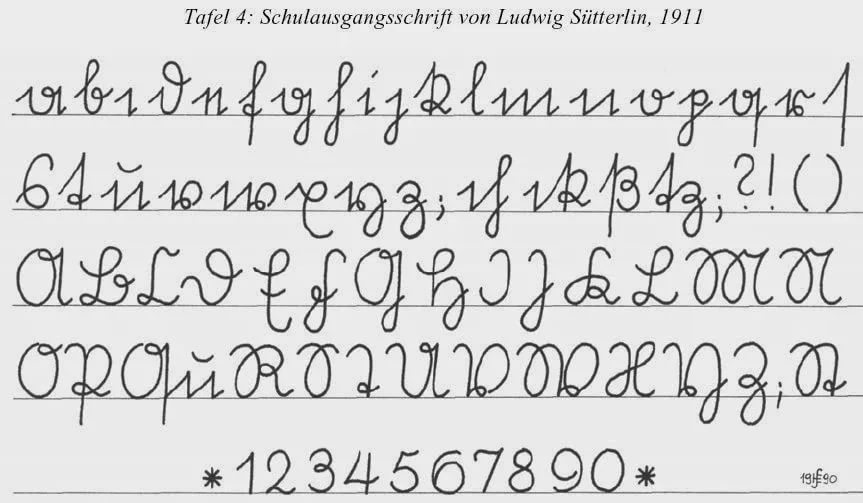 Tafel 4: Schulausgangsschrift von Ludwig Sütterlin, 1911
a b c d e f g h i j k l m n o p q r ſ
s t u v w x y z ; ch ck ß tz ; ? ! ( )
A B C D E F G H I J K L M N
O P Qu R S T U V W X Y Z ; St
* 1 2 3 4 5 6 7 8 9 0 *